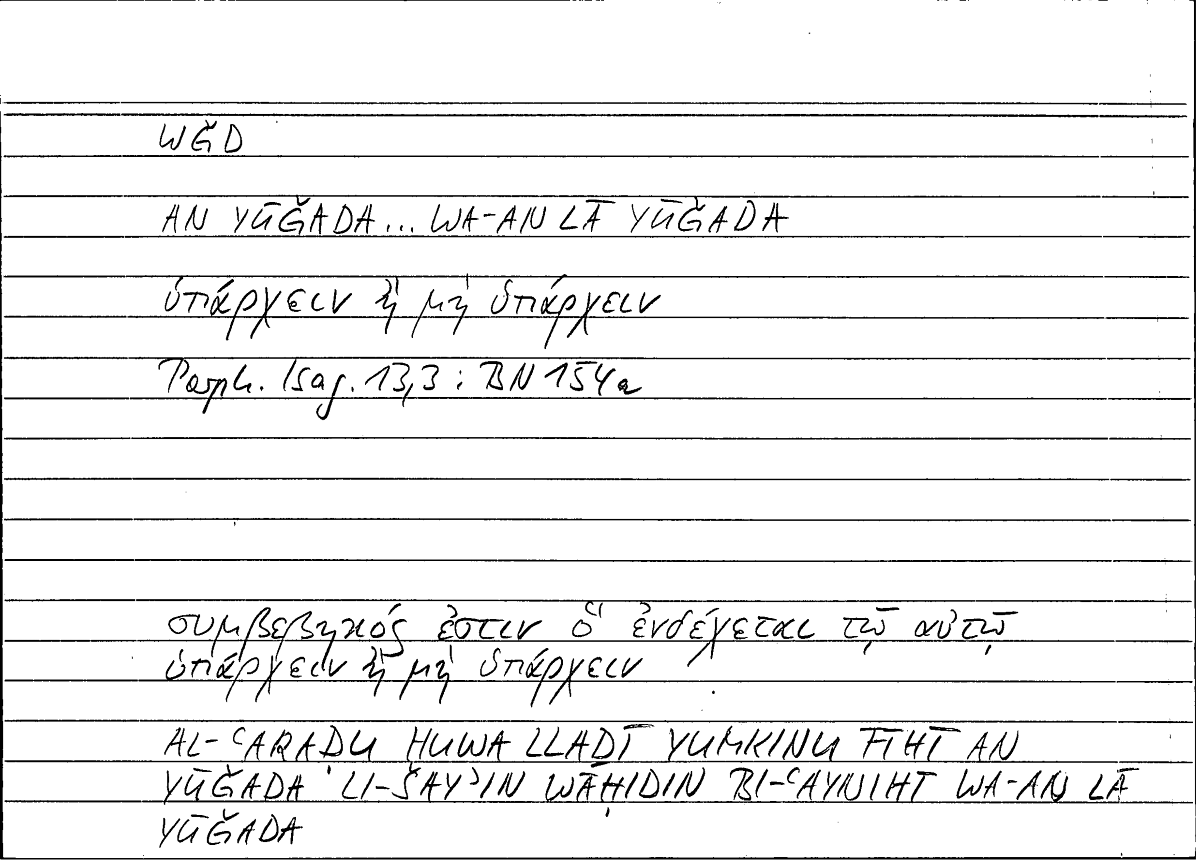 WǦD
AN YŪǦADA... WA-AN LĀ YŪǦADA
ὑπάρχειν ἢ μὴ ὑπάρχειν
Porph. Isag. 13,3 : BN 154a
συμβεβηκός ἐστιν ὃ ἐνδέχεται τῷ αὐτῷ
ὑπάρχειν ἢ μὴ ὑπάρχειν
AL-ʿARADU HUWA LLADĪ YUMKINU FĪHĪ AN
YŪǦADA LI-ŠAYʾIN WĀḤIDIN BI-ʿAYNIHĪ WA-AN LĀ
YŪǦADA